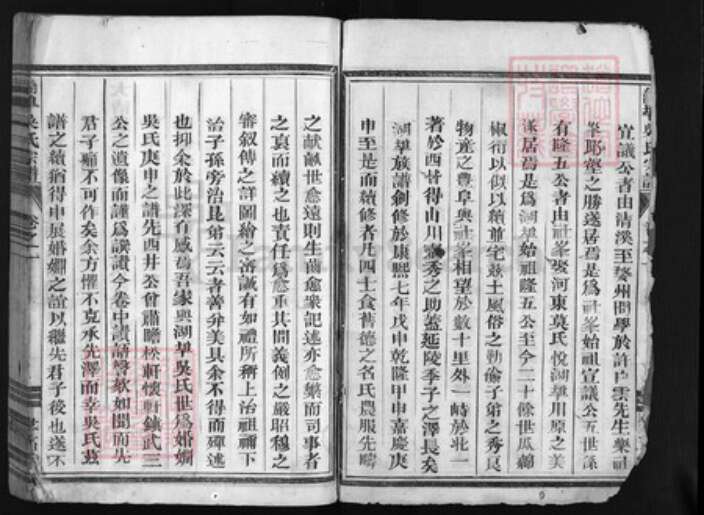 宣議公者由清溪至婺州問學於許白雲先生樂社
峯耶溪之勝遂居焉是爲社峯始祖宣議公五世孫
有隆五公者由社峯贅河東莫氏悅湖峯川原之美
遂居焉是爲湖峯始祖隆五公至今二十餘世瓜綿
椒衍以似以續並宅茲土風俗之勤儉子弟之秀良
物產之豐阜與社峯相望於數十里外一峙於北一
著於西皆得山川靈秀之助蓋延陵季子之澤長矣
湖峯族譜創修於康熙七年戊申乾隆甲申嘉慶庚
申至是而續修者凡四士食舊德之名氏農服先疇
之畎畝世愈遠則生齒愈衆記述亦愈繁而司事者
之裒而續之也責任爲愈重其間義例之嚴昭穆之
審叙傳之詳圖繪之洛誠有如禮所稱上治祖禰下
治子孫旁治昆弟云云者善弁美具余不得而殫述
也抑余於此深有感焉吾家與湖峯吳氏世爲婚婣
吳氏庚申之譜先西井公曾肅瞻松軒懷軒鎮武三
公之遺像而謹爲讚讚今卷中讚語謦欬如聞而先
君子痛不可作矣余方懼不克承先澤而幸吳氏茲
譜之續猶得申展婚婣之誼以繼先君子後也遂不
吳氏宗譜
卷之一